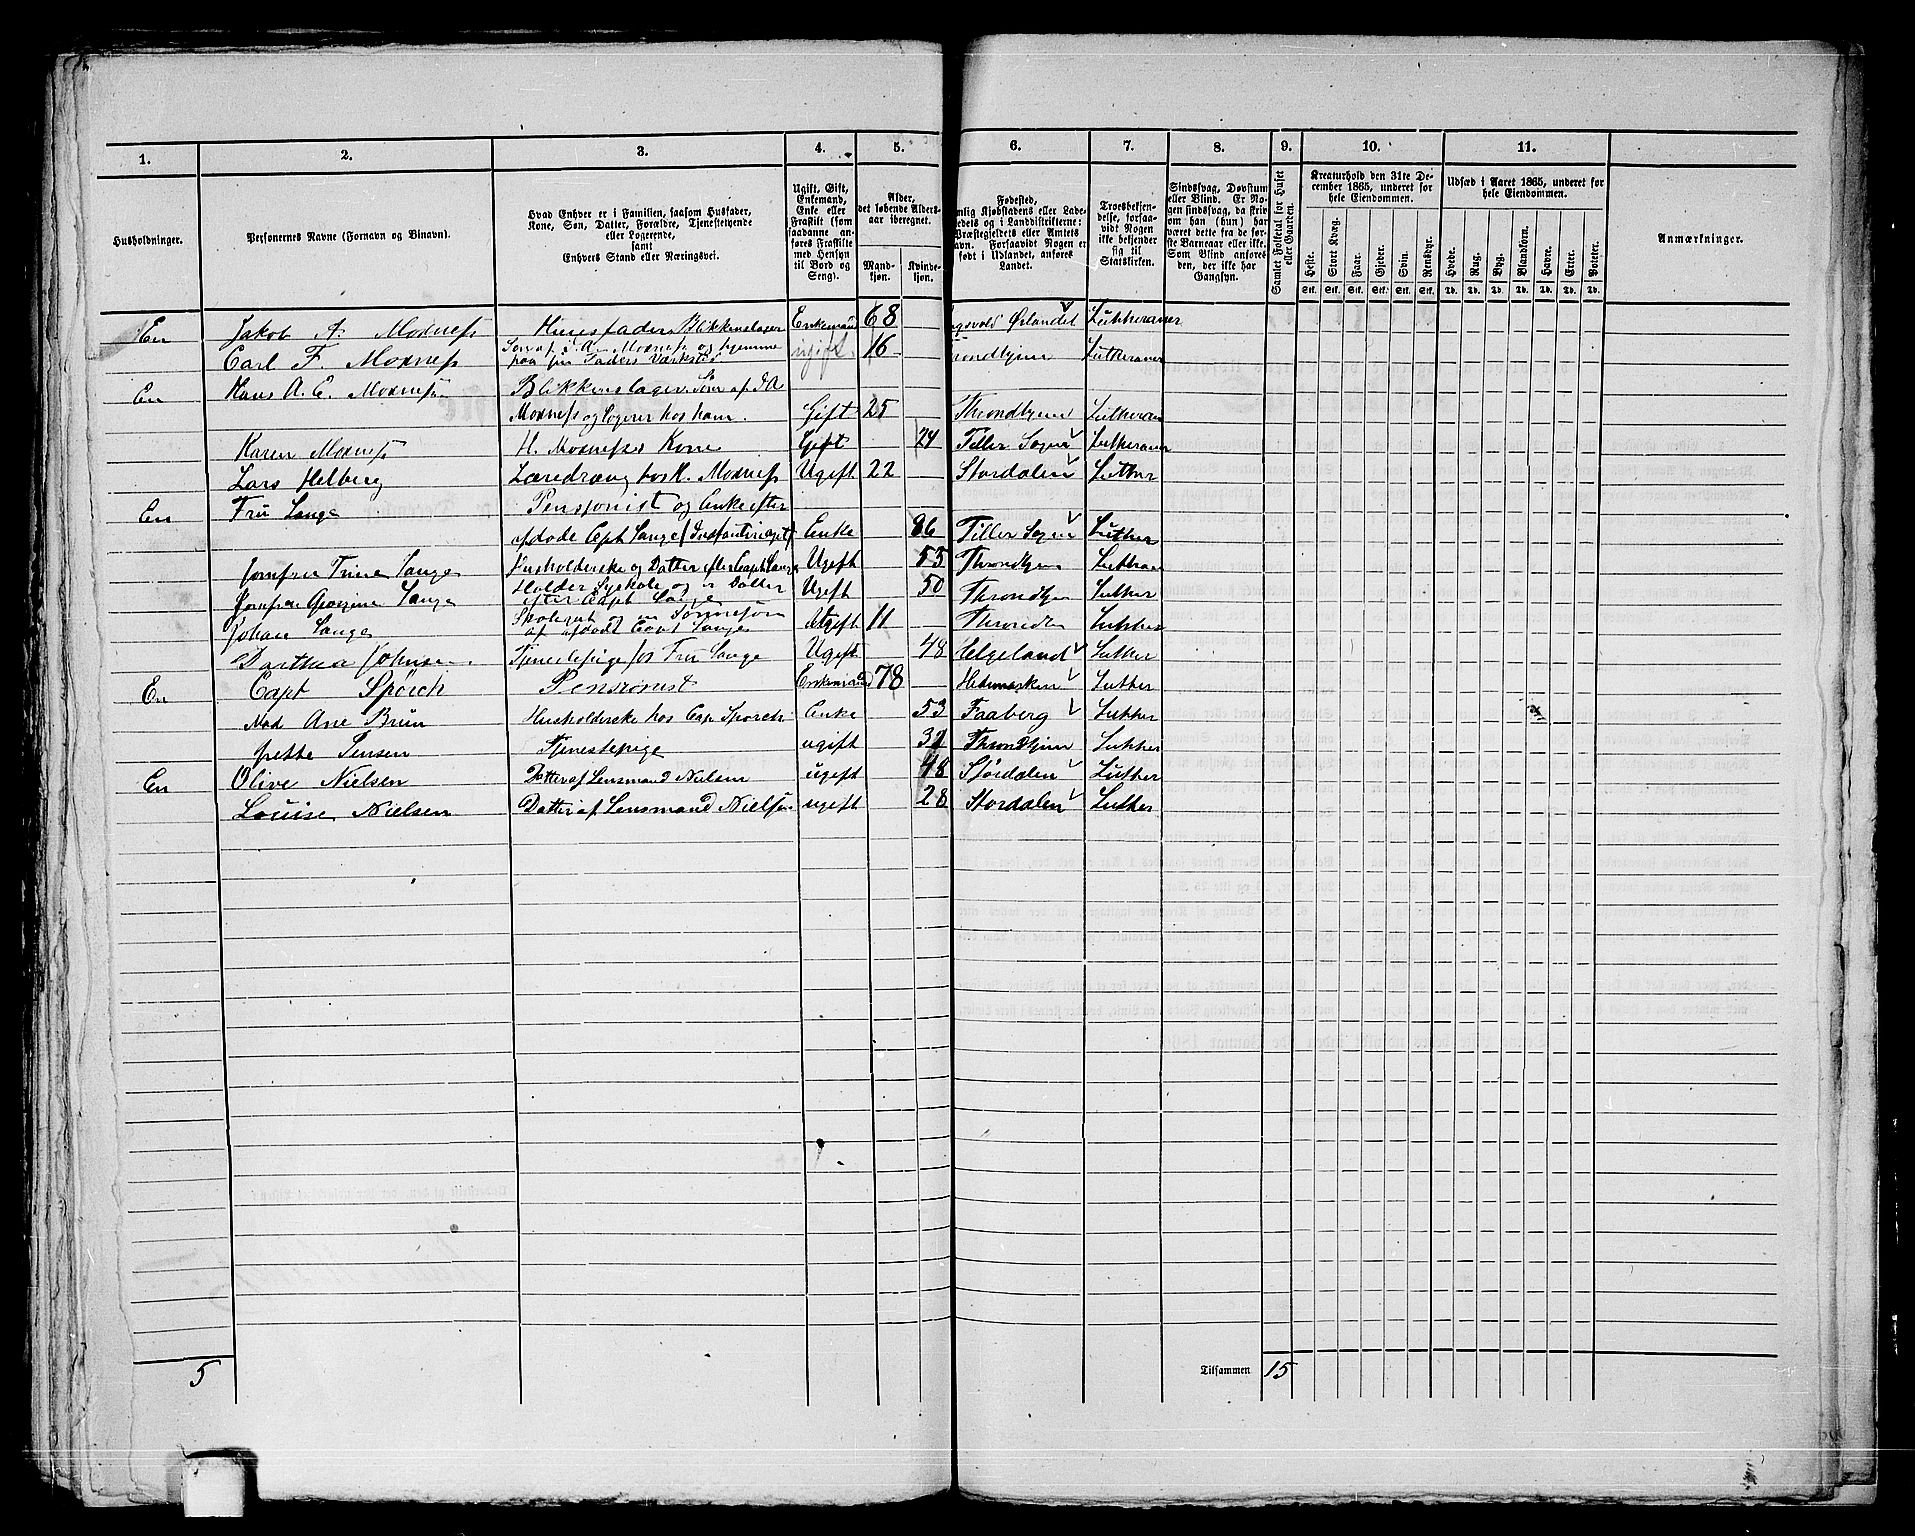 1. 2. 3. 4. 5. 6. 7. 8. 9. 10. 11.
Husholdninger.
Personernes Navne (Fornavn og Tilnavn).
Hvad Enhver er i Familien, saasom Husfader,
Kone, Søn, Datter, Forældre, Tjenestetyende
eller Logerende,
samt
Enhvers Stand eller Næringsvei.
Ugift, Gift,
Enkemand,
Enke eller
Fraskilt (som
saadanne an-
føres Fraskilte
med Hensyn
til Bord og
Seng).
Alder,
det løbende Alders-
aar iberegnet.
Mand-
kjøn.
Kvinde-
kjøn.
Fødested,
mlig Kjøbstadens eller Lade-
stedets og i Landdistrikterne:
Præstegjeldets eller Amtets
avn. Forsaavidt Nogen er
født i Udlandet, anføres
Landet.
Troesbekjen-
delse, forsaa-
vidt Nogen
ikke bekjender
sig til
Statskirken.
Sindssvag, Døvstum
eller Blind. Er No-
gen sindssvag, da skriv
om han (hun) har
været dette fra de før-
ste Barneaar eller ikke.
Som Blind anføres
den, der ikke har
Gangsyn.
Samlet Folketal for Huset
eller Gaarden.
Kreaturhold den 31te De-
cember 1865, underet for
hele Eiendommen.
Heste. Stort Kvæg. Faar. Gjeder. Svin. Rensdyr.
Stk. Stk. Stk. Stk. Stk. Stk.
Udsæd i Aaret 1865, underet for
hele Eiendommen.
Hvede. Rug. Byg. Blandkorn. Havre. Erter. Poteter.
Td. Td. Td. Td. Td. Td. Td.
Anmærkninger.
En Jakob A Moxness Huusfader Blikkenslager Enkemand 68 Ørlandet Lutheraner
Carl F. Moxness Søn af J. A. Moxness og hjemme
paa sin Faders Værksted ugift. 16 rondhjem Lutheraner
En Hans A. E. Moxness Blikkenslager. Søn af J A
Moxness og Logerer hos ham. Gift 25 Throndhjem Lutheran
Karen Moxness H. Moxness Kone Gift 24 Tiller Sogn Lutheraner
Lars Helberg Læredræng hos H. Moxness Ugift 22 Stordalen Luther
En Fru Lange Pensjonist og Enke efter
afdøde Capt Lange Enke 86 Tiller Sogn Luther
Jomfru Trine Lange Husholderske og Datter efter Capt Lange Ugift 53 Throndhjem
Jomfru Georgine Lange Holder Syskole og Datter
efter Capt Lange Ugift 50 Throndhjem Luther
Johan Lange
af afdødt Capt Lange Ugift 11 Luther
Dorthea Johnsen. Tjenestepige hos Fru Lange Ugift 48 Helgeland Luther
En Capt Spörch Pensionist Enkemand 78 Hedemarken Luther
Mad Ane Brun Husholderske hos Cap Sporch Enke 53 Faaberg Luther
Jensen Tjenestepige ugift 32 Throndhjem Luther
En Olive Nielsen Datter af Lensmand Nielsen ugift 48 Størdalen Luther
Louise Nielsen Datter af Lensmand Nielsen ugift 28 Stordalen Luther
5 Tilsammen 15